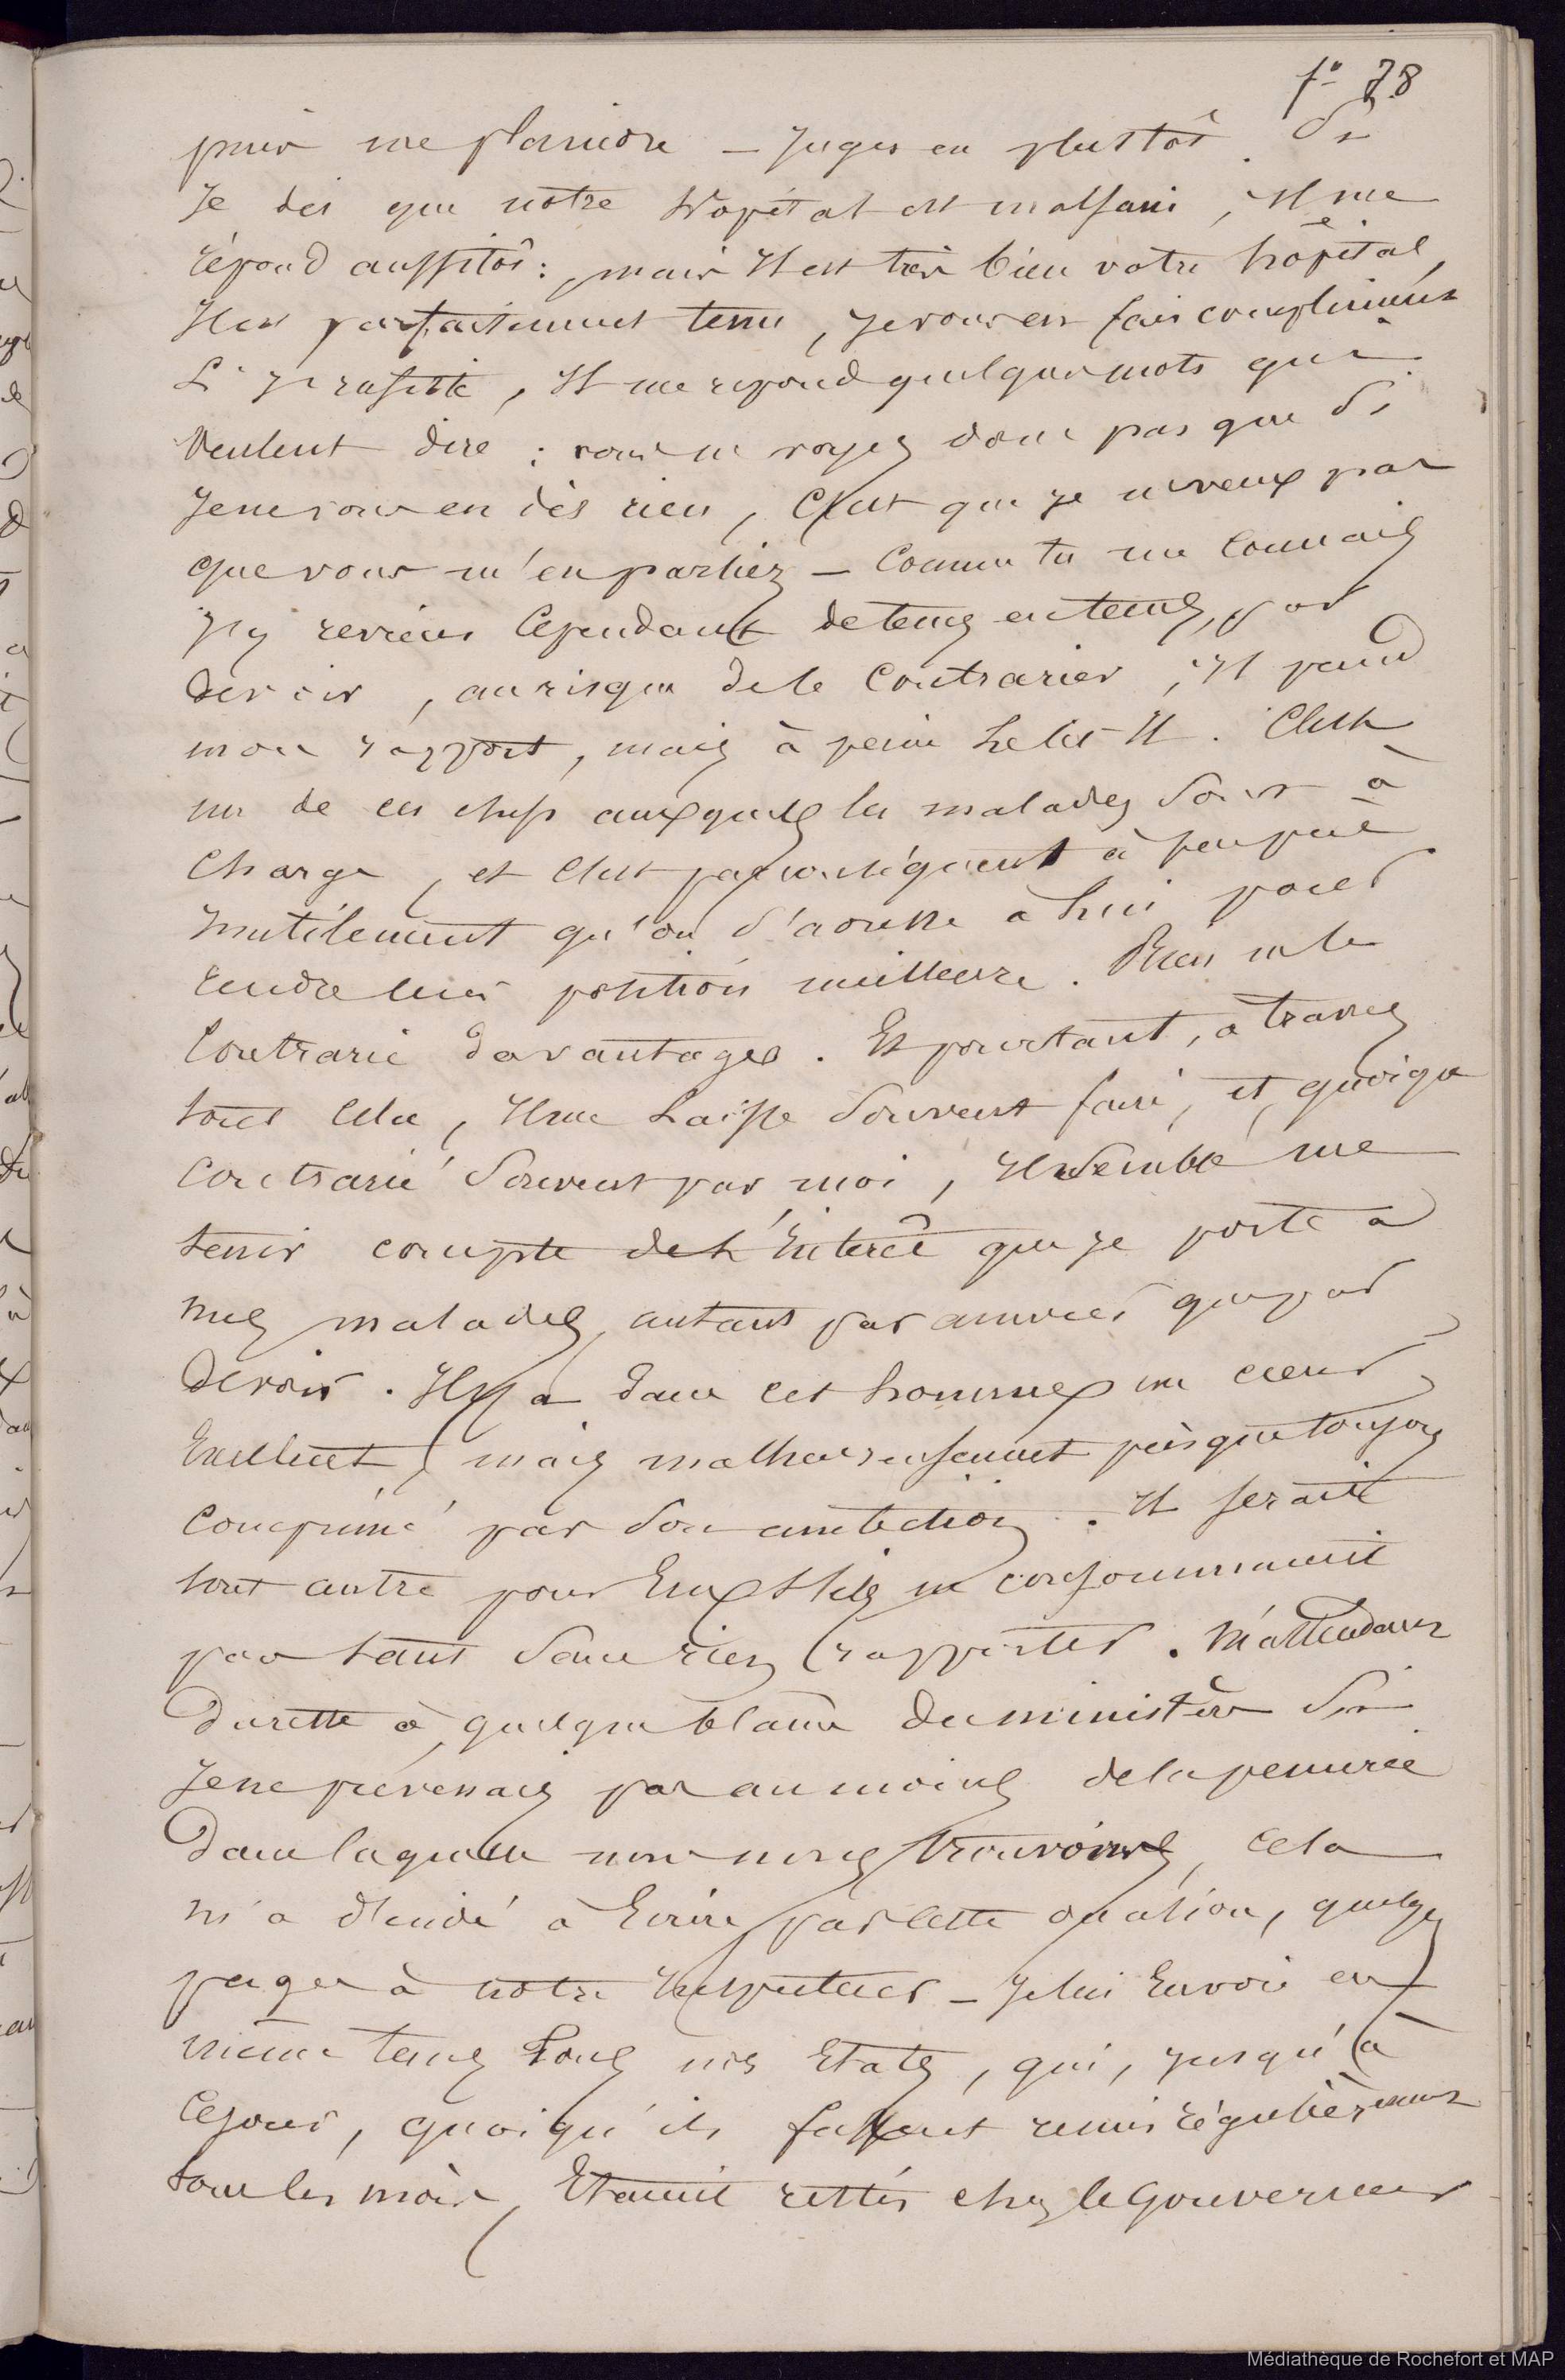 fo 78
puis me plaindre — Juges en plustôt. Si
Je dis que notre hopital est malsain, Il me
répond aussitôt : mais Il est très bien votre hôpital,
Il est parfaitement tenu, Je vous en fais compliment
Si J'insiste, Il me repond quelques mots qui
veulent dire : vous ne voyez donc pas que Si
Je ne vous en dis rien, C'est que je ne veux pas
que vous m'en parliez — Comme tu me Connais
J'y reviens Cependant de tems en tems, par
devoir, au risque de le Contrarier, Il prend
mon rapport, mais à peine le lit-Il. C'est
un de ces chefs auxquels les malades Sont à
Charge, et C'est par conséquent à peu près
Inutilement qu'on S'adresse à lui pour
rendre leur position meilleure. Rien ne le
Contrarie davantage. Et pourtant, à travers
tout Cela, Il me Laisse Souvent faire, et, quoique
Contrarié Souvent par moi, Il Semble me
tenir compte de L'Interêt que je porte à
mes malades, autant par amour que par
devoir. Il y a dans cet homme un cœur
Excellent, mais malheureusement presque toujours
Comprimé par Son ambition. Il serait
tout autre pour Eux S'ils ne consommaient
pas tant Sans rien rapporter. M'attendant
du reste à quelque blâme du ministère Si
Je ne prévenais pas au moins de la penurie
dans laquelle nous nous trouvons, cela
m'a décidé à Ecrire par cette occasion, quelques
pages à notre Inspecteur — Je lui Envoie en
même tems tous mes Etats, qui, jusqu'à
Ce jour, quoiqu'ils fussent remis régulièrement
tous les mois, Etaient restés chez le Gouverneur
Médiathèque de Rochefort et MAP